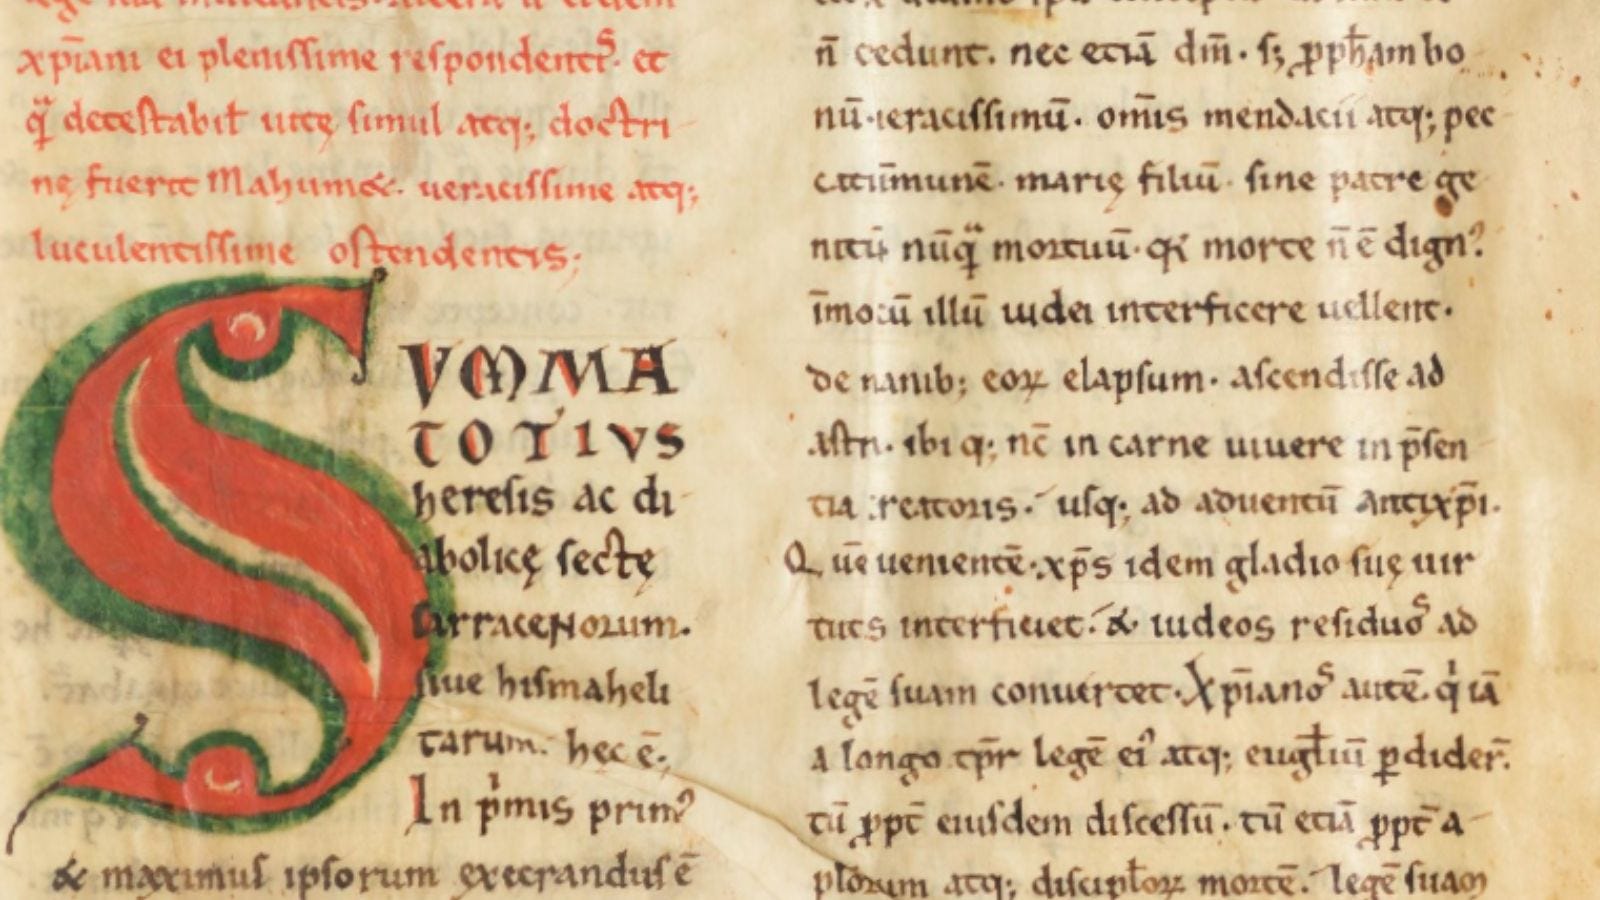 xp̄iani ei plenissime respondentꝭ. et
qͣ̄ detestabił uitę simul atq; doctri
nę fuerit Mahum&. ueracissime atq;
luculentissime ostendentis;
SVMMA
TOTIVS
heresis ac di
abolicę sectę
sarracenorum.
siue hismaheli
tarum. hec ē.
In pͥmis prim᾽
& maximus ipsorum execrandus ē
n̄ cedunt. nec etiā dm̄. sꝫ ꝓpħam bo
nū. ueracissimū. om̄is mendacii atq; pec
cati īmunē. marię filiū. sine patre ge
nitū nūqͣ̄ mortuū. qꝛ morte n̄ ē dign᾽
īmo cū illū iudei interficere uellent.
de manib; eoꝝ elapsum. ascendisse ad
astra. ibi q; nc̄ in carne uiuere in p̄sen
tia creatoris. usq; ad aduentū antixp̄i.
Quē uenientē. xp̄s idem gladio suę uir
tutis interficiet. & iudeos residuoˢ ad
legē suam conuertet. Xp̄ianoˢ autē. qͥ iā
a longo tp̄r legē ei᾽ atq; eugłiū ꝑdider̄.
tū ꝓpt̄ eiusdem discessū. tū etiā ꝓpt̄ a
płorum atq; discipłoꝝ mortē. legē suam